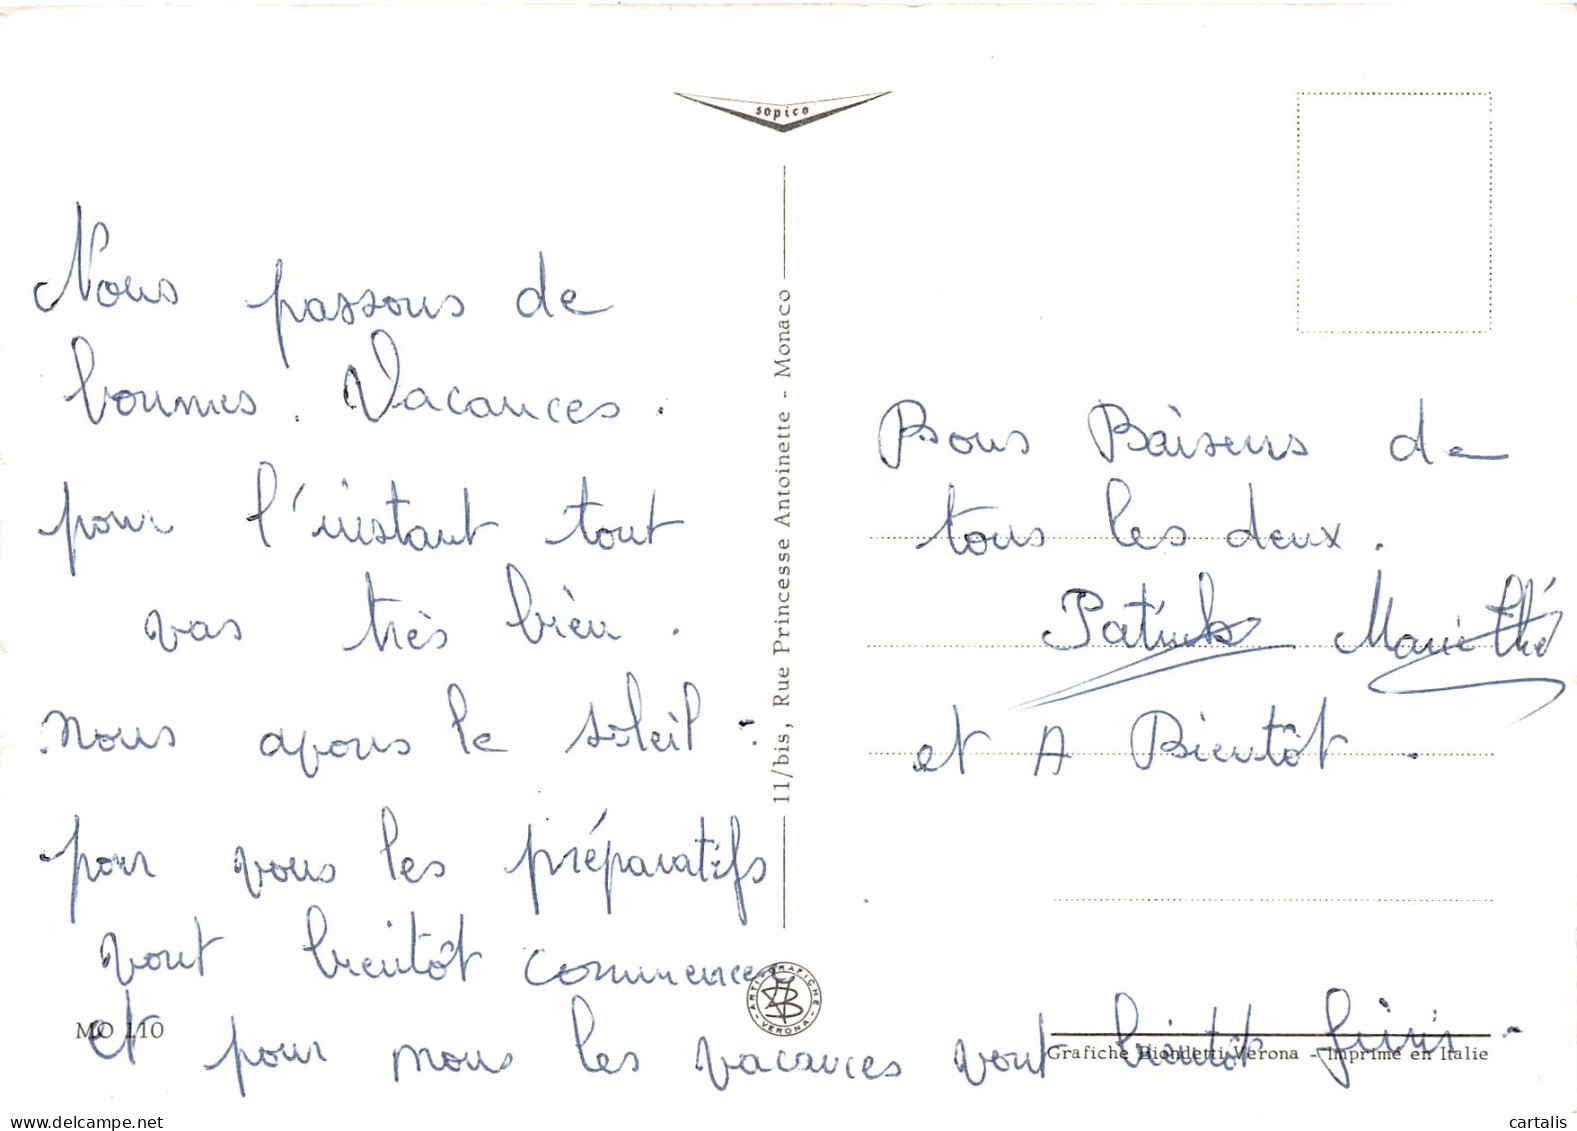 sopico
Nous passons de
bonnes. Vacances.
pour l'instant tout
vas très bien.
nous avons le soleil -
pour vous les préparatifs
vont bientôt commencer
et pour nous les vacances vont bientôt finir -
MO 110
11/bis, Rue Princesse Antoinette - Monaco
ARTI GRAFICHE
VERONA
Bons Baisers de
tous les deux.
Patrick Marie Thé
et A Bientôt.
Grafiche Biondetti Verona - Imprimé en Italie
cartalis